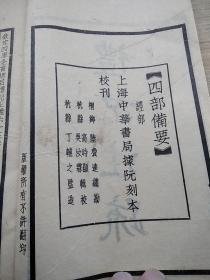 【四部備要】
經部
上海中華書局據阮刻本
校刊
桐鄉 陸費逵總勘
杭縣 高時顯 吳汝霖 輯校
杭縣 丁輔之監造
版權所有不許翻印